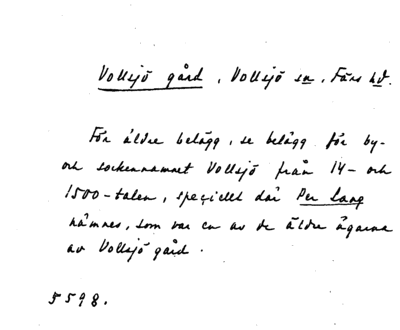 Vollsjö gård, Vollsjö sn, Färs hd.
För äldre belägg, se belägg för by-
och sockennamnet Vollsjö från 14- och
1500-talen, speciellt där Per Lang
nämnes, som var en av de äldre ägarna
av Vollsjö gård.
5598.